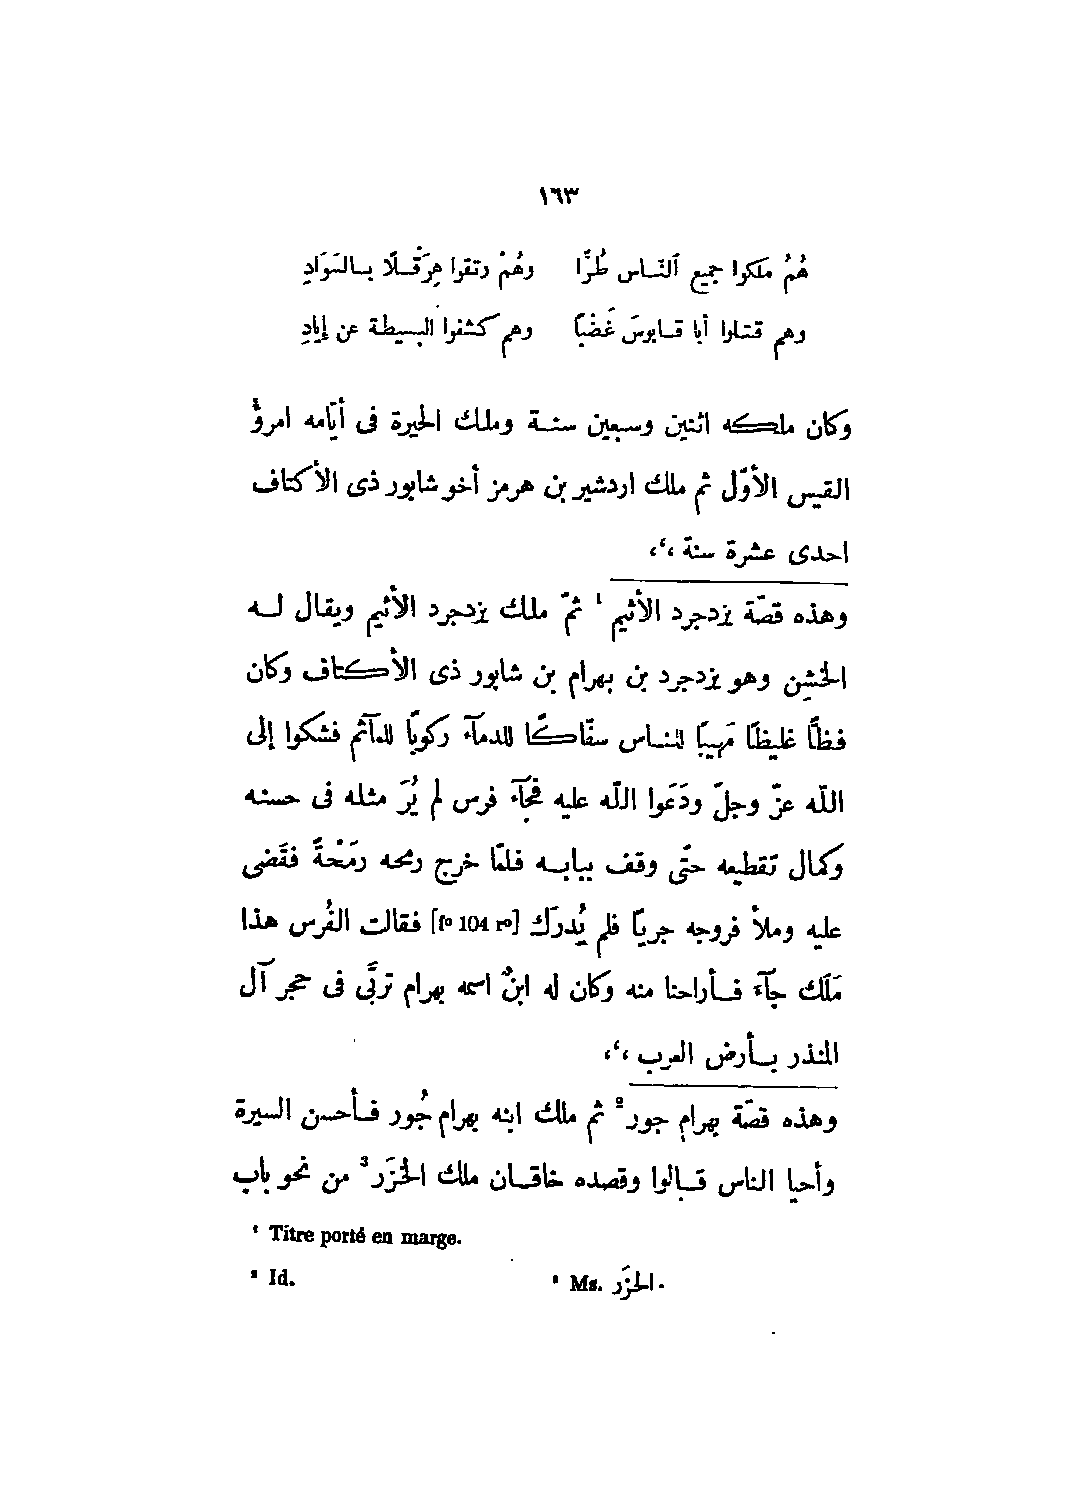 ١٦٣
هُمُ ملكوا جميع ٱلنّاس طُرًّا وهُمْ رتقوا هِرَقْلًا بالسَوَادِ
وهم قتلوا أبا قابوسَ غَضْبًا وهم كشفوا البسيطة عن إيادِ
وكان ملكه اثنتين وسبعين سنة وملك الحيرة فى أيّامه امرؤُ
القيس الأوّل ثم ملك اردشير بن هرمز أخو شابور ذى الأكتاف
احدى عشرة سنة ،‘،
وهذه قصّة يزدجرد الأثيم ¹ ثمّ ملك يزدجرد الأثيم ويقال له
الخشِن وهو يزدجرد بن بهرام بن شابور ذى الأكتاف وكان
فظًّا غليظًا مَهِيبًا للناس سفّاكًا للدمآء ركوبًا للمآثم فشكوا إلى
اللّه عزّ وجلّ ودَعَوا اللّه عليه فجآء فرس لم يُرَ مثله فى حسنه
وكمال تقطيعه حتّى وقف ببابه فلمّا خرج رمحه رَمْحةً فقَضى
عليه وملأ فروجه جريًا فلم يُدرَك [fº 104 rº] فقالت الفُرس هذا
مَلَك جآء فأراحنا منه وكان له ابنٌ اسمه بهرام تربَّى فى حجر آل
المنذر بأرض العرب ،‘،
وهذه قصّة بهرام جور ² ثم ملك ابنه بهرام جُور فأحسن السيرة
وأحيا الناس قالوا وقصده خاقان ملك الخَزَر ³ من نحو باب
¹ Titre porté en marge.
² Id. ³ Ms. الحزَر.